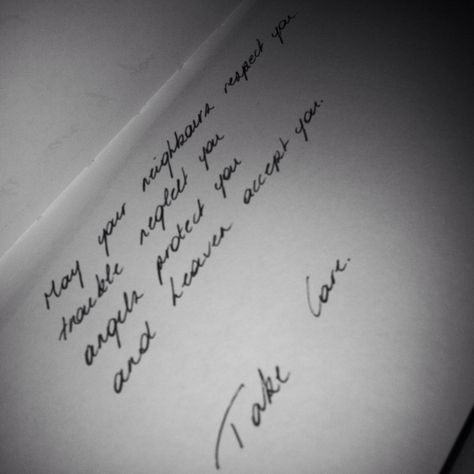 May your neighbours respect you
trouble neglect you
angels protect you
and heaven accept you.
Take Care.